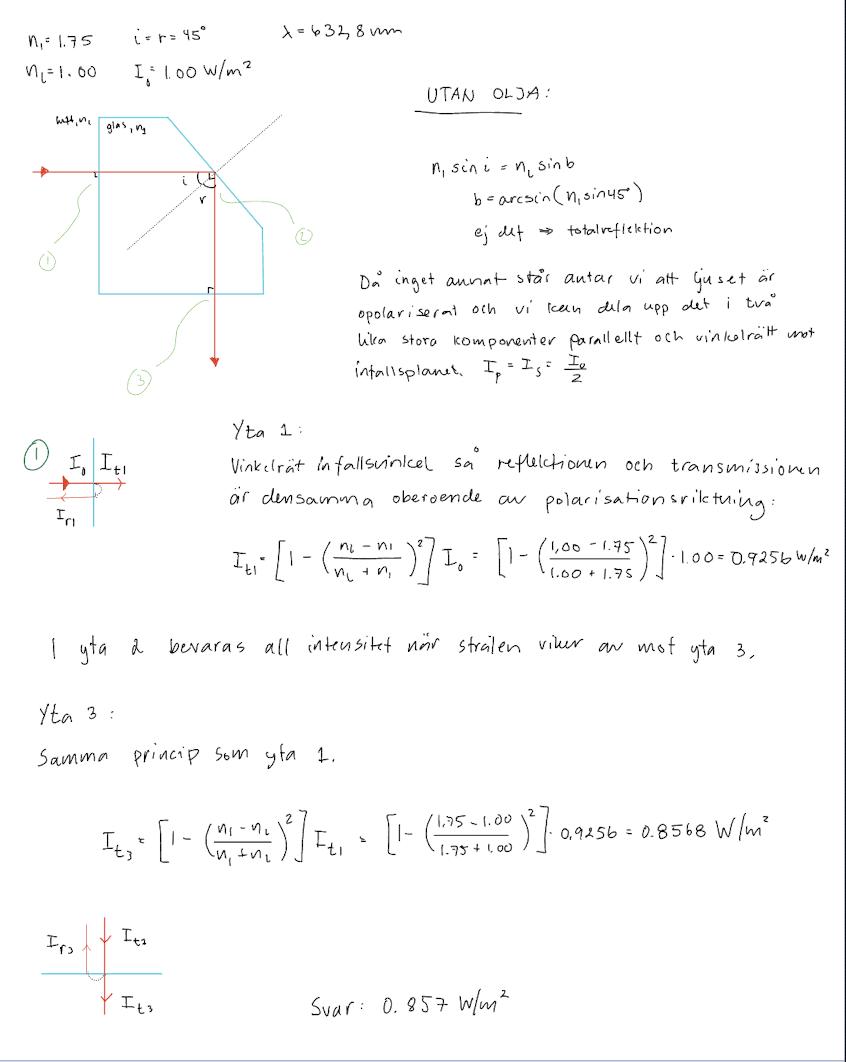 n₁ = 1.75 i = r = 45° λ = 632,8 nm
n_L = 1.00 I₀ = 1.00 W/m²
UTAN OLJA:
luft, n_L glas, n₁
i
r
1
2
3
n₁ sin i = n_L sin b
b = arcsin(n₁ sin 45°)
ej def ⇒ totalreflektion
Då inget annat står antar vi att ljuset är
opolariserat och vi kan dela upp det i två
lika stora komponenter parallellt och vinkelrätt mot
infallsplanet. I_p = I_s = I₀/2
1
I₀ I_t1
I_r1
Yta 1:
Vinkelrät infallsvinkel så reflektionen och transmissionen
är densamma oberoende av polarisationsriktning:
I_t1 = [1 - ((n_L - n₁)/(n_L + n₁))²] I₀ = [1 - ((1,00 - 1.75)/(1.00 + 1.75))²] · 1.00 = 0.9256 W/m²
I yta 2 bevaras all intensitet när strålen viker av mot yta 3.
Yta 3:
Samma princip som yta 1.
I_t3 = [1 - ((n₁ - n_L)/(n₁ + n_L))²] I_t1 = [1 - ((1,75 - 1.00)/(1.75 + 1,00))²] · 0,9256 = 0.8568 W/m²
I_r3 I_t2
I_t3
Svar: 0.857 W/m²